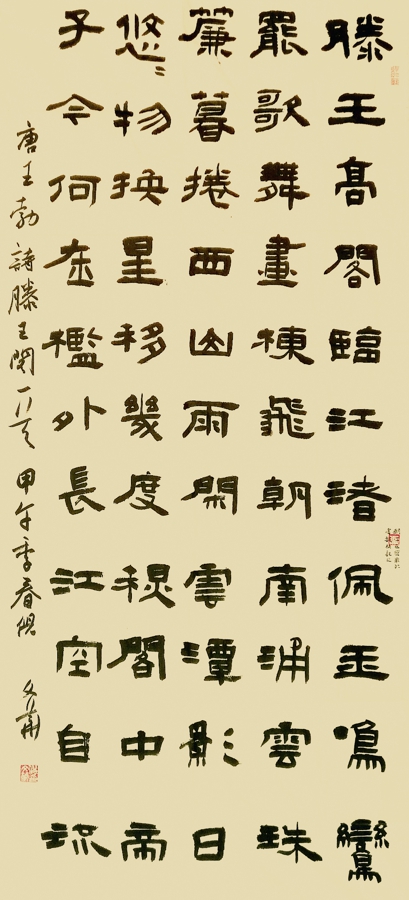 滕王高閣臨江渚佩玉鳴鸞
罷歌舞畫棟飛朝南浦雲珠
簾暮捲西山雨閑雲潭影日
悠〻物換星移幾度秋閣中帝
子今何在檻外長江空自流
唐王勃詩滕王閣一首 甲午季春